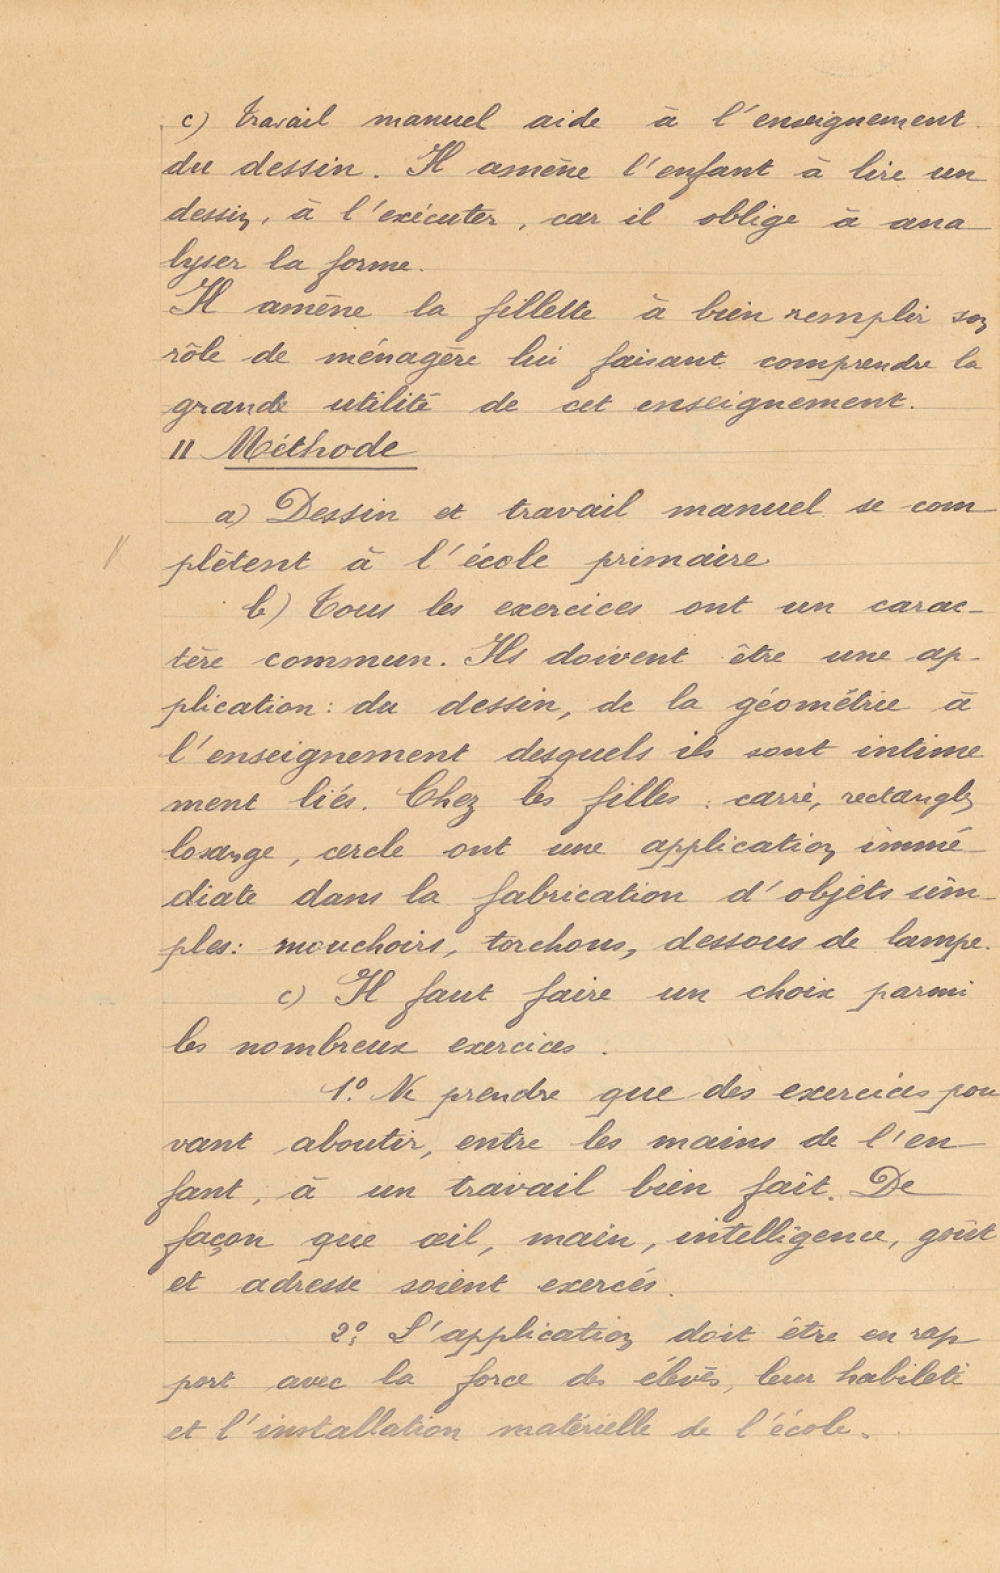 c) Travail manuel aide à l'enseignement
du dessin. Il amène l'enfant à lire un
dessin, à l'exécuter, car il oblige à ana
lyser la forme.
Il amène la fillette à bien remplir son
rôle de ménagère lui faisant comprendre la
grande utilité de cet enseignement.
II Méthode
a) Dessin et travail manuel se com
plètent à l'école primaire
b) Tous les exercices ont un carac-
tère commun. Ils doivent être une ap-
plication: du dessin, de la géométrie à
l'enseignement desquels ils sont intime
ment liés. Chez les filles : carré, rectangle,
losange, cercle ont une application immé
diate dans la fabrication d'objets sim-
ples: mouchoirs, torchons, dessous de lampe.
c) Il faut faire un choix parmi
les nombreux exercices.
1º. Ne prendre que des exercices pou
vant aboutir, entre les mains de l'en
fant, à un travail bien fait. De
façon que œil, main, intelligence, goût
et adresse soient exercés.
2º. L'application doit être en rap
port avec la force des élèves, leur habileté
et l'installation matérielle de l'école.